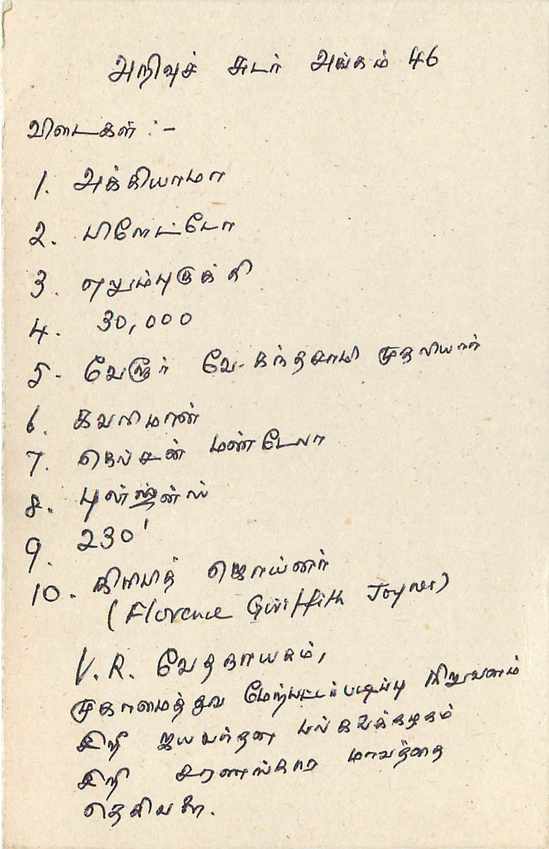 அறிவுச் சுடர் அங்கம் 46
விடைகள் :-
1. அக்கியாமா
2. பிளேட்டோ
3. எறும்புருக்கி
4. 30,000
5. வேரூர் வே. கந்தசாமி முதலியார்
6. கவரிமான்
7. நெல்சன் மண்டேலா
8.
9. 230'
10. கிரிபித் ஜொய்னர்
(Florence Griffith Joyner)
V.R. வேதநாயகம்,
முகாமைத்துவ மேற்பட்டப்படிப்பு நிறுவனம்
சிறி ஜயவர்தன பல்கலைக்கழகம்
சிறி சரணங்கார மாவத்தை
தெகிவளை.